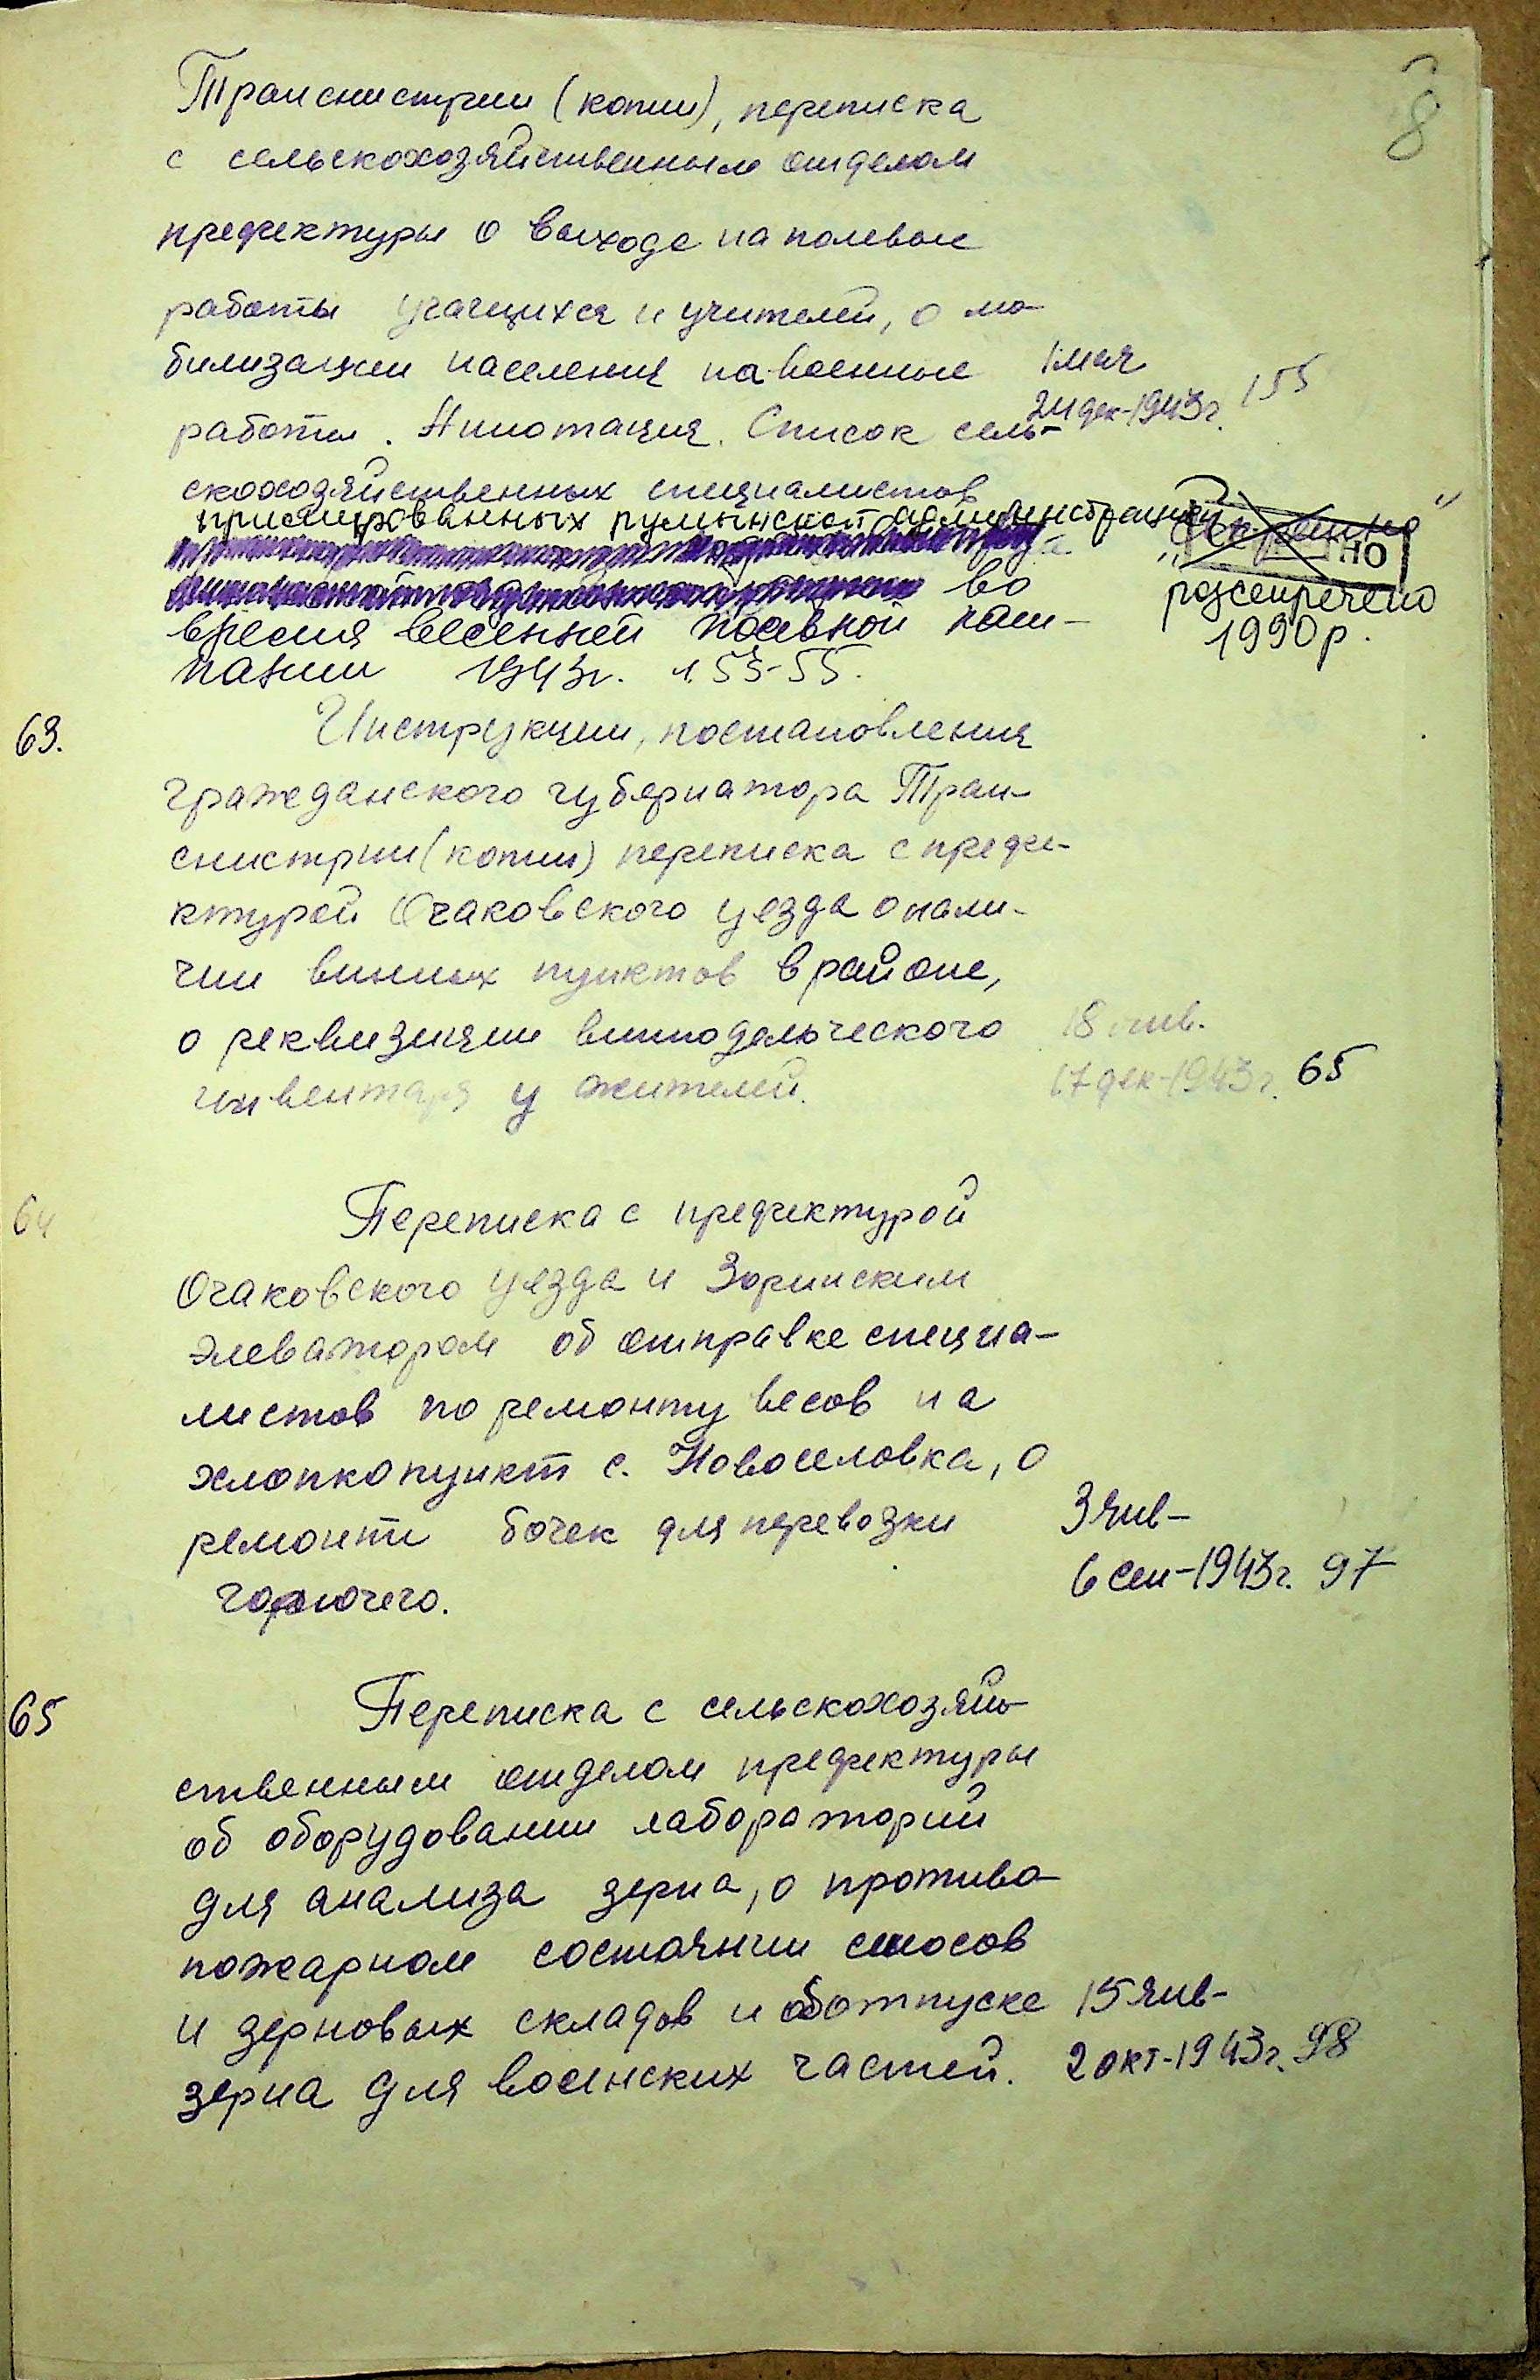 8
Транснистрии (копии), переписка
с сельскохозяйственным отделом
префектуры о выходе на полевые
работы учащихся и учителей, о мо-
билизации населения на военные 1 мая
работы. Аннотация. Список сель- 24 дек-1943г. 155
скохозяйственных специалистов
премированных румынской администрацией
во
время весенней посевной кам-
пании 1943г. л. 53-55.
"Секретно"
но
розсекречено
1990р.
63. Инструкции, постановления
гражданского губернатора Тран-
снистрии (копии) переписка с префе-
ктурой Очаковского уезда о нали-
чии винных пунктов в районе,
о реквизиции винодельческого 18 янв.
инвентаря у жителей. 17 дек-1943г. 65
64 Переписка с префектурой
Очаковского уезда и Зоринским
элеватором об отправке специа-
листов по ремонту весов на
хлопкопункт с. Новоселовка, о
ремонте бочек для перевозки 3 янв-
горючего. 6 сен-1943г. 97
65 Переписка с сельскохозяй-
ственным отделом префектуры
об оборудовании лабораторий
для анализа зерна, о противо-
пожарном состоянии
и зерновых складов и об отпуске 15 янв-
зерна для воинских частей. 2 окт-1943г. 98